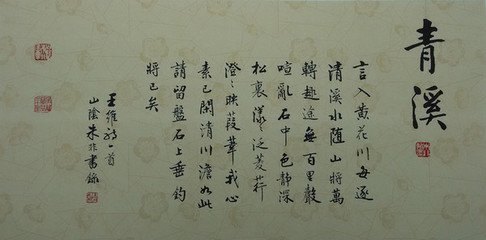 青溪
言入黄花川每逐
清溪水随山將萬
轉趣途無百里聲
喧亂石中色靜深
松裏漾漾泛菱荇
澄澄映葭葦我心
素已閑清川澹如此
請留盤石上垂釣
將已矣
王維詩一首
山陰朱非書錄